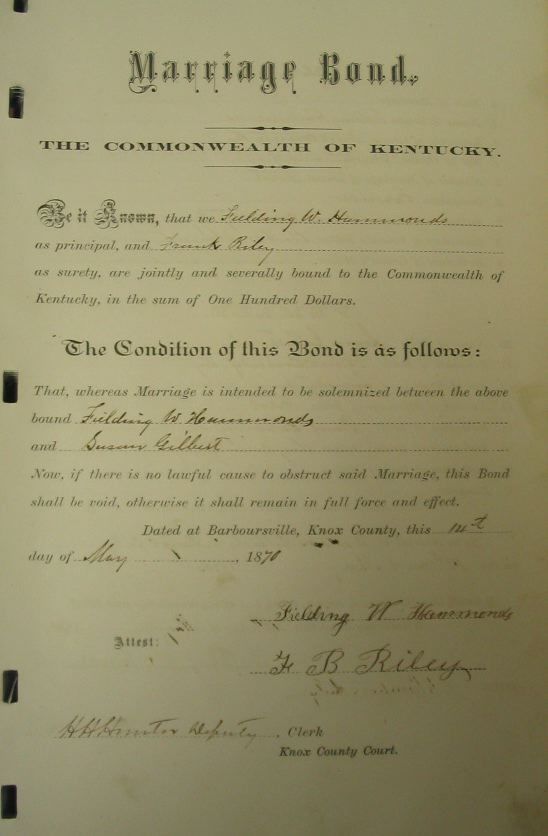 Marriage Bond.
THE COMMONWEALTH OF KENTUCKY.
Be it Known, that we Fielding W. Hammonds
as principal, and Frank Riley
as surety, are jointly and severally bound to the Commonwealth of
Kentucky, in the sum of One Hundred Dollars.
The Condition of this Bond is as follows:
That, whereas Marriage is intended to be solemnized between the above
bound Fielding W. Hammonds
and Susan Gilbert
Now, if there is no lawful cause to obstruct said Marriage, this Bond
shall be void, otherwise it shall remain in full force and effect.
Dated at Barboursville, Knox County, this 14th
day of May, 1870
Fielding W Hammonds
Attest:
F B Riley
Deputy, Clerk
Knox County Court.